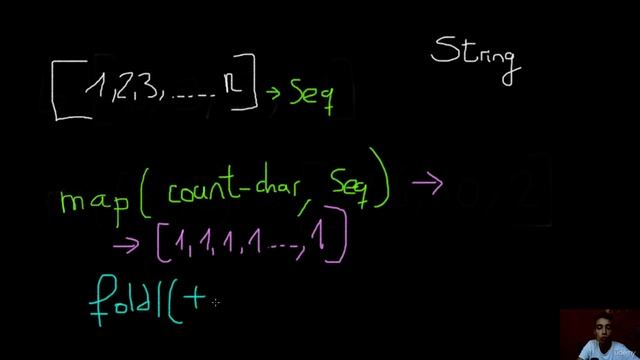 String
[1,2,3,.....,n] → Seq
map(count-char, Seq) →
→ [1,1,1,1...,1]
foldl(+
udemy